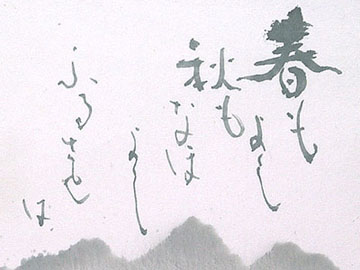 春もよし
秋も
なほ
よし
ふるさとは